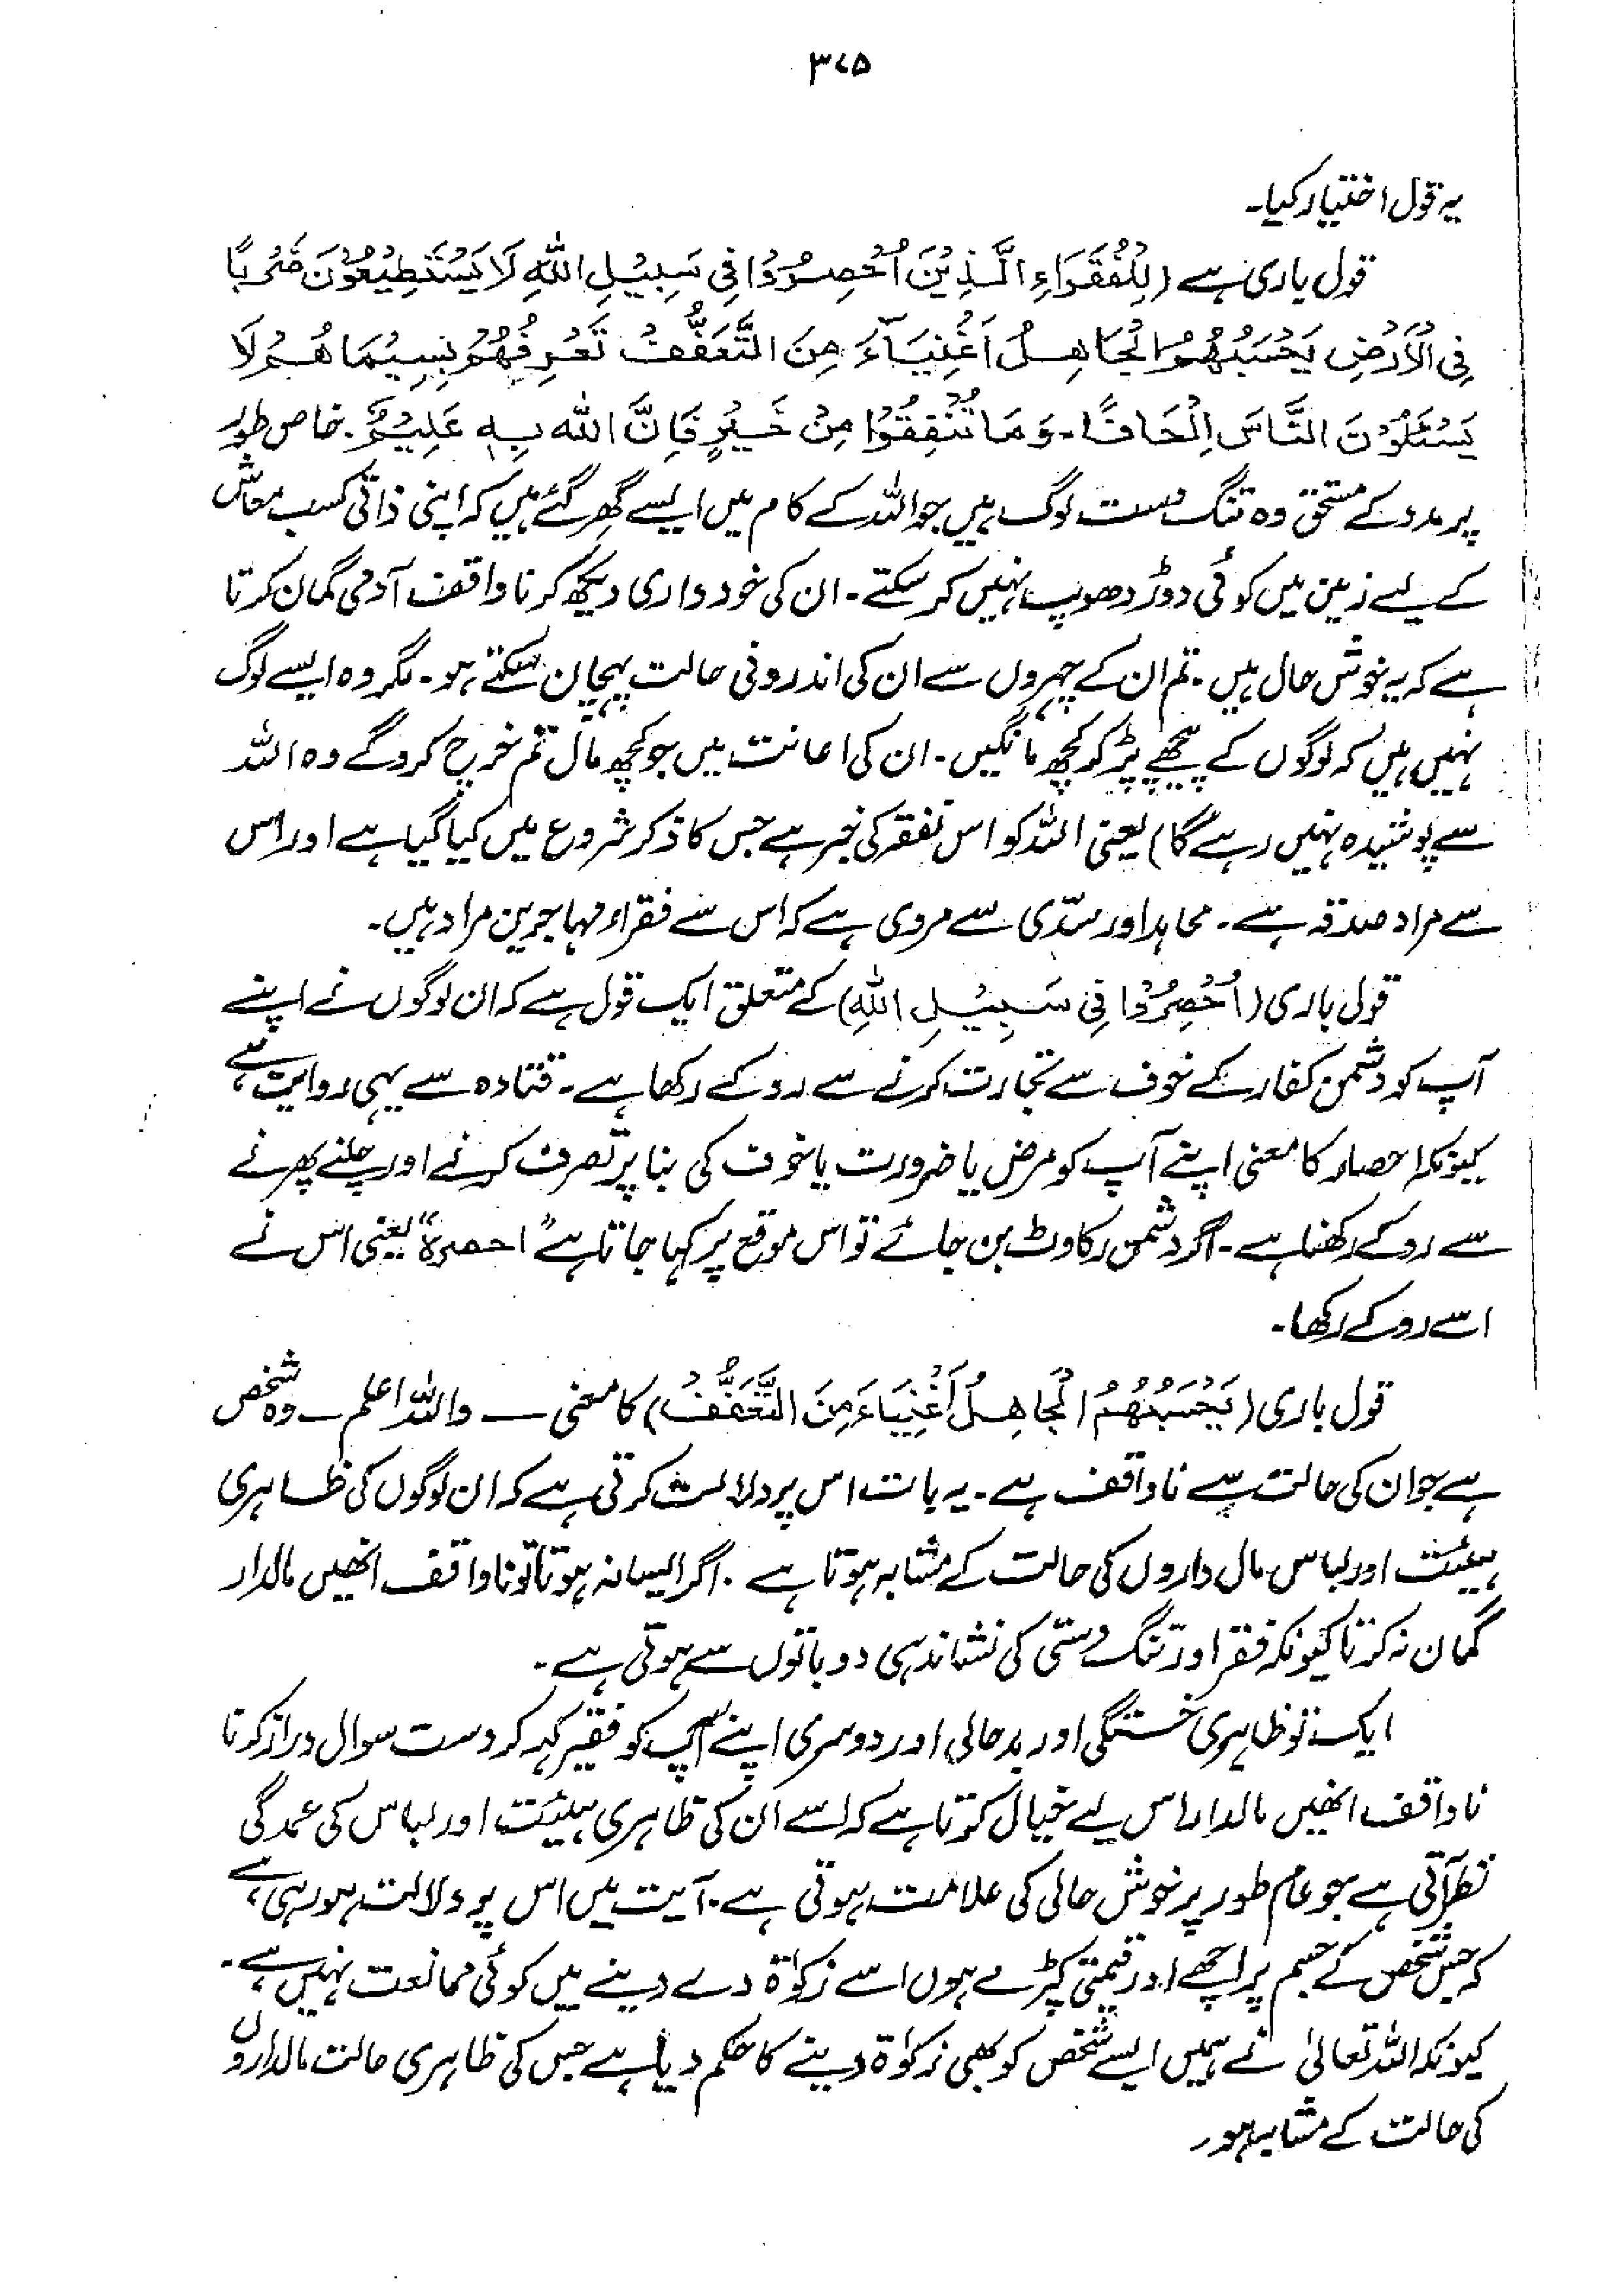 ۳۷۵
یہ قول اختیار کیا۔
قول باری ہے (لِلْفُقَرَاءِ الَّذِیْنَ اُحْصِرُوْا فِی سَبِیْلِ اللّٰہِ لَا یَسْتَطِیْعُوْنَ ضَرْبًا
فِی الْاَرْضِ یَحْسَبُھُمُ الْجَاھِلُ اَغْنِیَآءَ مِنَ التَّعَفُّفِ تَعْرِفُھُمْ بِسِیْمَاھُمْ لَا
یَسْئَلُوْنَ النَّاسَ اِلْحَافًا۔ وَمَا تُنْفِقُوْا مِنْ خَیْرٍ فَاِنَّ اللّٰہ بِہٖ عَلِیْمٌ۔ خاص طور
پر مدد کے مستحق وہ تنگ دست لوگ ہیں جو اللہ کے کام میں ایسے گھر گئے ہیں کہ اپنی ذاتی کسب معاش
کے لیے زمین میں کوئی دوڑ دھوپ نہیں کر سکتے۔ ان کی خود داری دیکھ کر ناواقف آدمی گمان کرتا
ہے کہ یہ خوش حال ہیں۔ تم ان کے چہروں سے ان کی اندرونی حالت پہچان سکتے ہو۔ مگر وہ ایسے لوگ
نہیں ہیں کہ لوگوں کے پیچھے پڑ کر کچھ مانگیں۔ ان کی اعانت میں جو کچھ مال تم خرچ کرو گے وہ اللہ
سے پوشیدہ نہیں رہے گا) یعنی اللہ کو اس نفقہ کی خبر ہے جس کا ذکر شروع میں کیا گیا ہے اور اس
سے مراد صدقہ ہے۔ مجاہد اور سدّی سے مروی ہے کہ اس سے فقراء مہاجرین مراد ہیں۔
قول باری (اُحْصِرُوْا فِی سَبِیْلِ اللّٰہِ) کے متعلق ایک قول ہے کہ ان لوگوں نے اپنے
آپ کو دشمن کفار کے خوف سے تجارت کرنے سے روکے رکھا ہے۔ قتادہ سے یہی روایت ہے
کیونکہ احصار کا معنی اپنے آپ کو مرض یا ضرورت یا خوف کی بنا پر تصرف کرنے اور چلنے پھرنے
سے روکے رکھنا ہے۔ اگر دشمن رکاوٹ بن جائے تو اس موقع پر کہا جاتا ہے "احصرہ" یعنی اس نے
اسے روکے رکھا۔
قول باری (یَحْسَبُھُمُ الْجَاھِلُ اَغْنِیَاءَ مِنَ التَّعَفُّفِ) کا معنی — واللہ اعلم — وہ شخص
ہے جو ان کی حالت سے ناواقف ہے۔ یہ بات اس پر دلالت کرتی ہے کہ ان لوگوں کی ظاہری
ہیئت اور لباس مال داروں کی حالت کے مشابہ ہوتا ہے۔ اگر ایسا نہ ہوتا تو ناواقف انھیں مالدار
گمان نہ کرتا کیونکہ فقر اور تنگ دستی کی نشاندہی دو باتوں سے ہوتی ہے۔
ایک تو ظاہری خستگی اور بدحالی اور دوسری اپنے آپ کو فقیر کہہ کر دست سوال دراز کرنا
ناواقف انھیں مالدار اس لیے خیال کرتا ہے کہ اسے ان کی ظاہری ہیئت اور لباس کی عمدگی
نظر آتی ہے جو عام طور پر خوش حالی کی علامت ہوتی ہے۔ آیت میں اس پر دلالت ہو رہی ہے
کہ جس شخص کے جسم پر اچھے اور قیمتی کپڑے ہوں اسے زکوٰۃ دے دینے میں کوئی ممانعت نہیں ہے۔
کیونکہ اللہ تعالیٰ نے ہمیں ایسے شخص کو بھی زکوٰۃ دینے کا حکم دیا ہے جس کی ظاہری حالت مالداروں
کی حالت کے مشابہ ہو۔